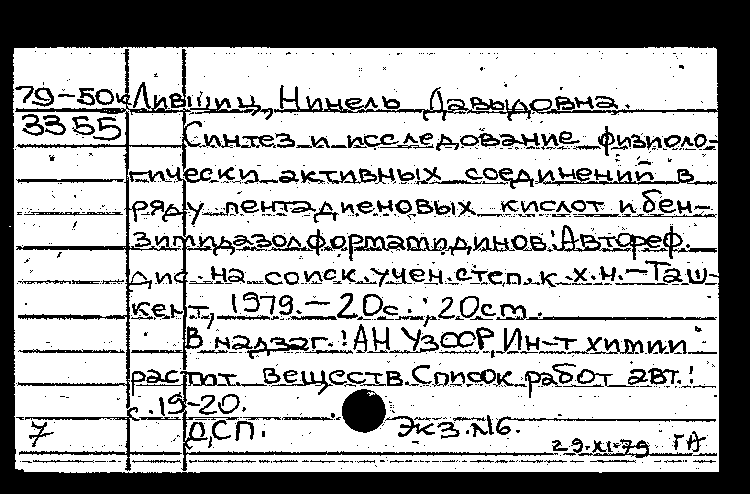 79-50к Лившиц, Нинель Давыдовна.
3355 Синтез и исследование физиоло-
гически активных соединений в
ряду пентадиеновых кислот и бен-
зимидазолформамидинов: Автореф.
дис. на соиск. учен. степ. к.х.н. — Таш-
кент, 1979. — 20с.; 20см.
В надзаг.: АН УзССР, Ин-т химии
растит. веществ. Список работ авт.:
с. 19-20.
7 ДСП. Экз. №6.
29.XI.79 ГА